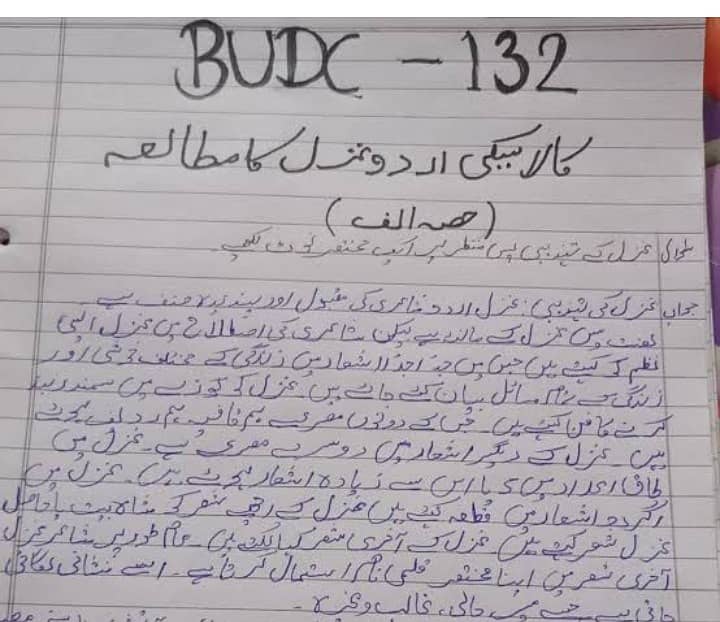 BUDC - 132
کلاسیکی اردو غزل کا مطالعہ
(حصہ الف)
سوال غزل کے تہذیبی پس منظر پر ایک مختصر نوٹ لکھیے۔
جواب غزل کی تہذیبی: غزل اردو شاعری کی مقبول اور پسندیدہ صنف ہے۔
میں غزل کے ہے لیکن شاعری کی اصطلاح میں غزل ایسی
نظم کو کہتے ہیں جس میں جدا جدا اشعار میں زندگی کے مختلف اور
زندگی کے تمام مسائل بیان کئے جاتے ہیں۔ غزل کو کوزے میں سمندر بند
کرنے کا فن کہتے ہیں۔ جس کے دونوں مصرعے ہم قافیہ ہم ردیف ہوتے
ہیں۔ غزل کے دیگر اشعار میں دوسرے مصرعے ہے۔ غزل میں
طاق اعداد میں یا اس سے زیادہ اشعار ہوتے ہیں۔ غزل میں
اگر دو اشعار میں قطعہ کہتے ہیں غزل کے اچھے شعر کو شاہ بیت یا حاصل
غزل شعر کہتے ہیں غزل کے آخری شعر کہتے ہیں۔ عام طور پر شاعر غزل
آخری شعر میں اپنا مختصر قلمی نام استعمال کرتا ہے۔ اسے نشانی
جاتی ہے۔ جیسے میر حالی، غالب وغیرہ۔